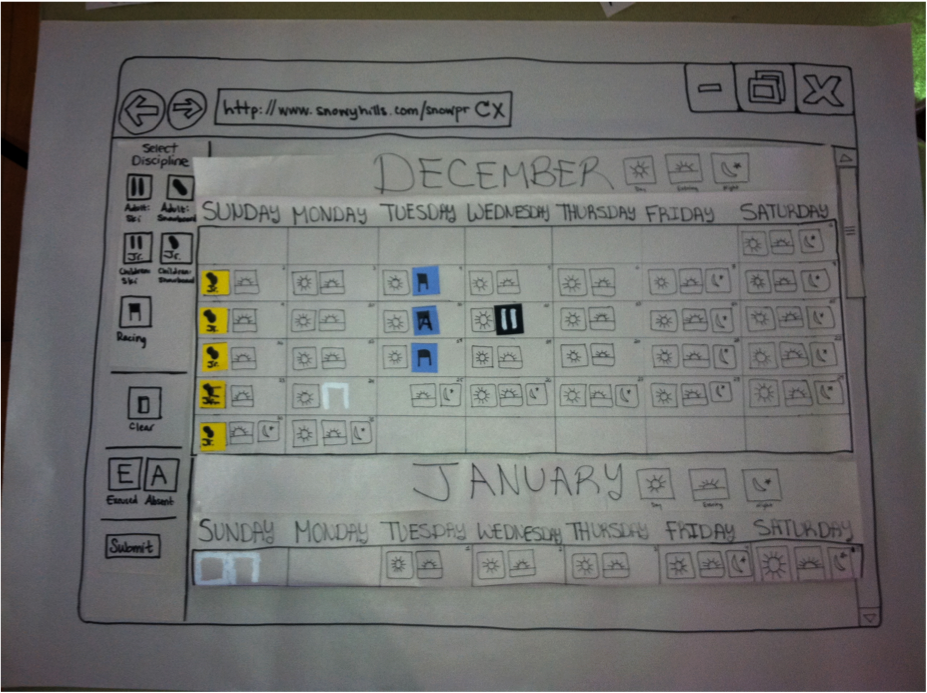 http://www.snowyhills.com/snowpr CX
Select
Discipline
Adult: Adult:
Ski Snowboard
Jr. Jr.
Children: Children:
Ski Snowboard
Racing
Clear
E A
Excused Absent
Submit
DECEMBER
Day Evening Night
SUNDAY MONDAY TUESDAY WEDNESDAY THURSDAY FRIDAY SATURDAY
Jr.
Jr.
A
Jr.
Jr.
JANUARY
Day Evening Night
SUNDAY MONDAY TUESDAY WEDNESDAY THURSDAY FRIDAY SATURDAY